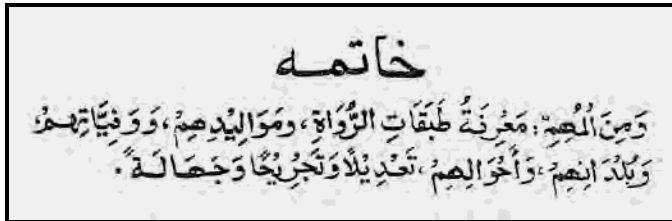 خاتمه
وَمِنَ الْمُهِمِّ: مَعْرِفَةُ طَبَقَاتِ الرُّوَاةِ، وَمَوَالِيْدِهِمْ، وَوَفِيَّاتِهِمْ
وَبُلْدَانِهِمْ، وَأَحْوَالِهِمْ، تَعْدِيْلًا وَتَجْرِيْحًا وَجَهَالَةً.